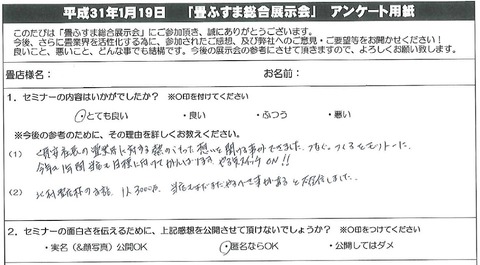 平成31年1月19日 「畳ふすま総合展示会」 アンケート用紙
このたびは「畳ふすま総合展示会」にご参加頂き、誠にありがとうございます。
今後、さらに畳業界を活性化する為に、参加されたご感想、及び弊社へのご意見・ご要望等をお聞かせください！
良いこと、悪いこと、どんな事でも結構です。今後の展示会の参考にさせて頂きますので、よろしくお願い致します。
畳店様名： お名前：
1. セミナーの内容はいかがでしたか？ ※○印を付けてください
・とても良い ・良い ・ふつう ・悪い
※今後の参考のために、その理由を詳しくお教えください。
(1) に対する 想いを聞ける事ができました。
今年の1年間 目標に向けてがんばります やる気スイッチ ON!!
(2) 1人3000円
2. セミナーの面白さを伝えるために、上記感想を公開させて頂けないでしょうか？ ※○印をつけてください
・実名（&顔写真）公開OK ・匿名ならOK ・公開してはダメ